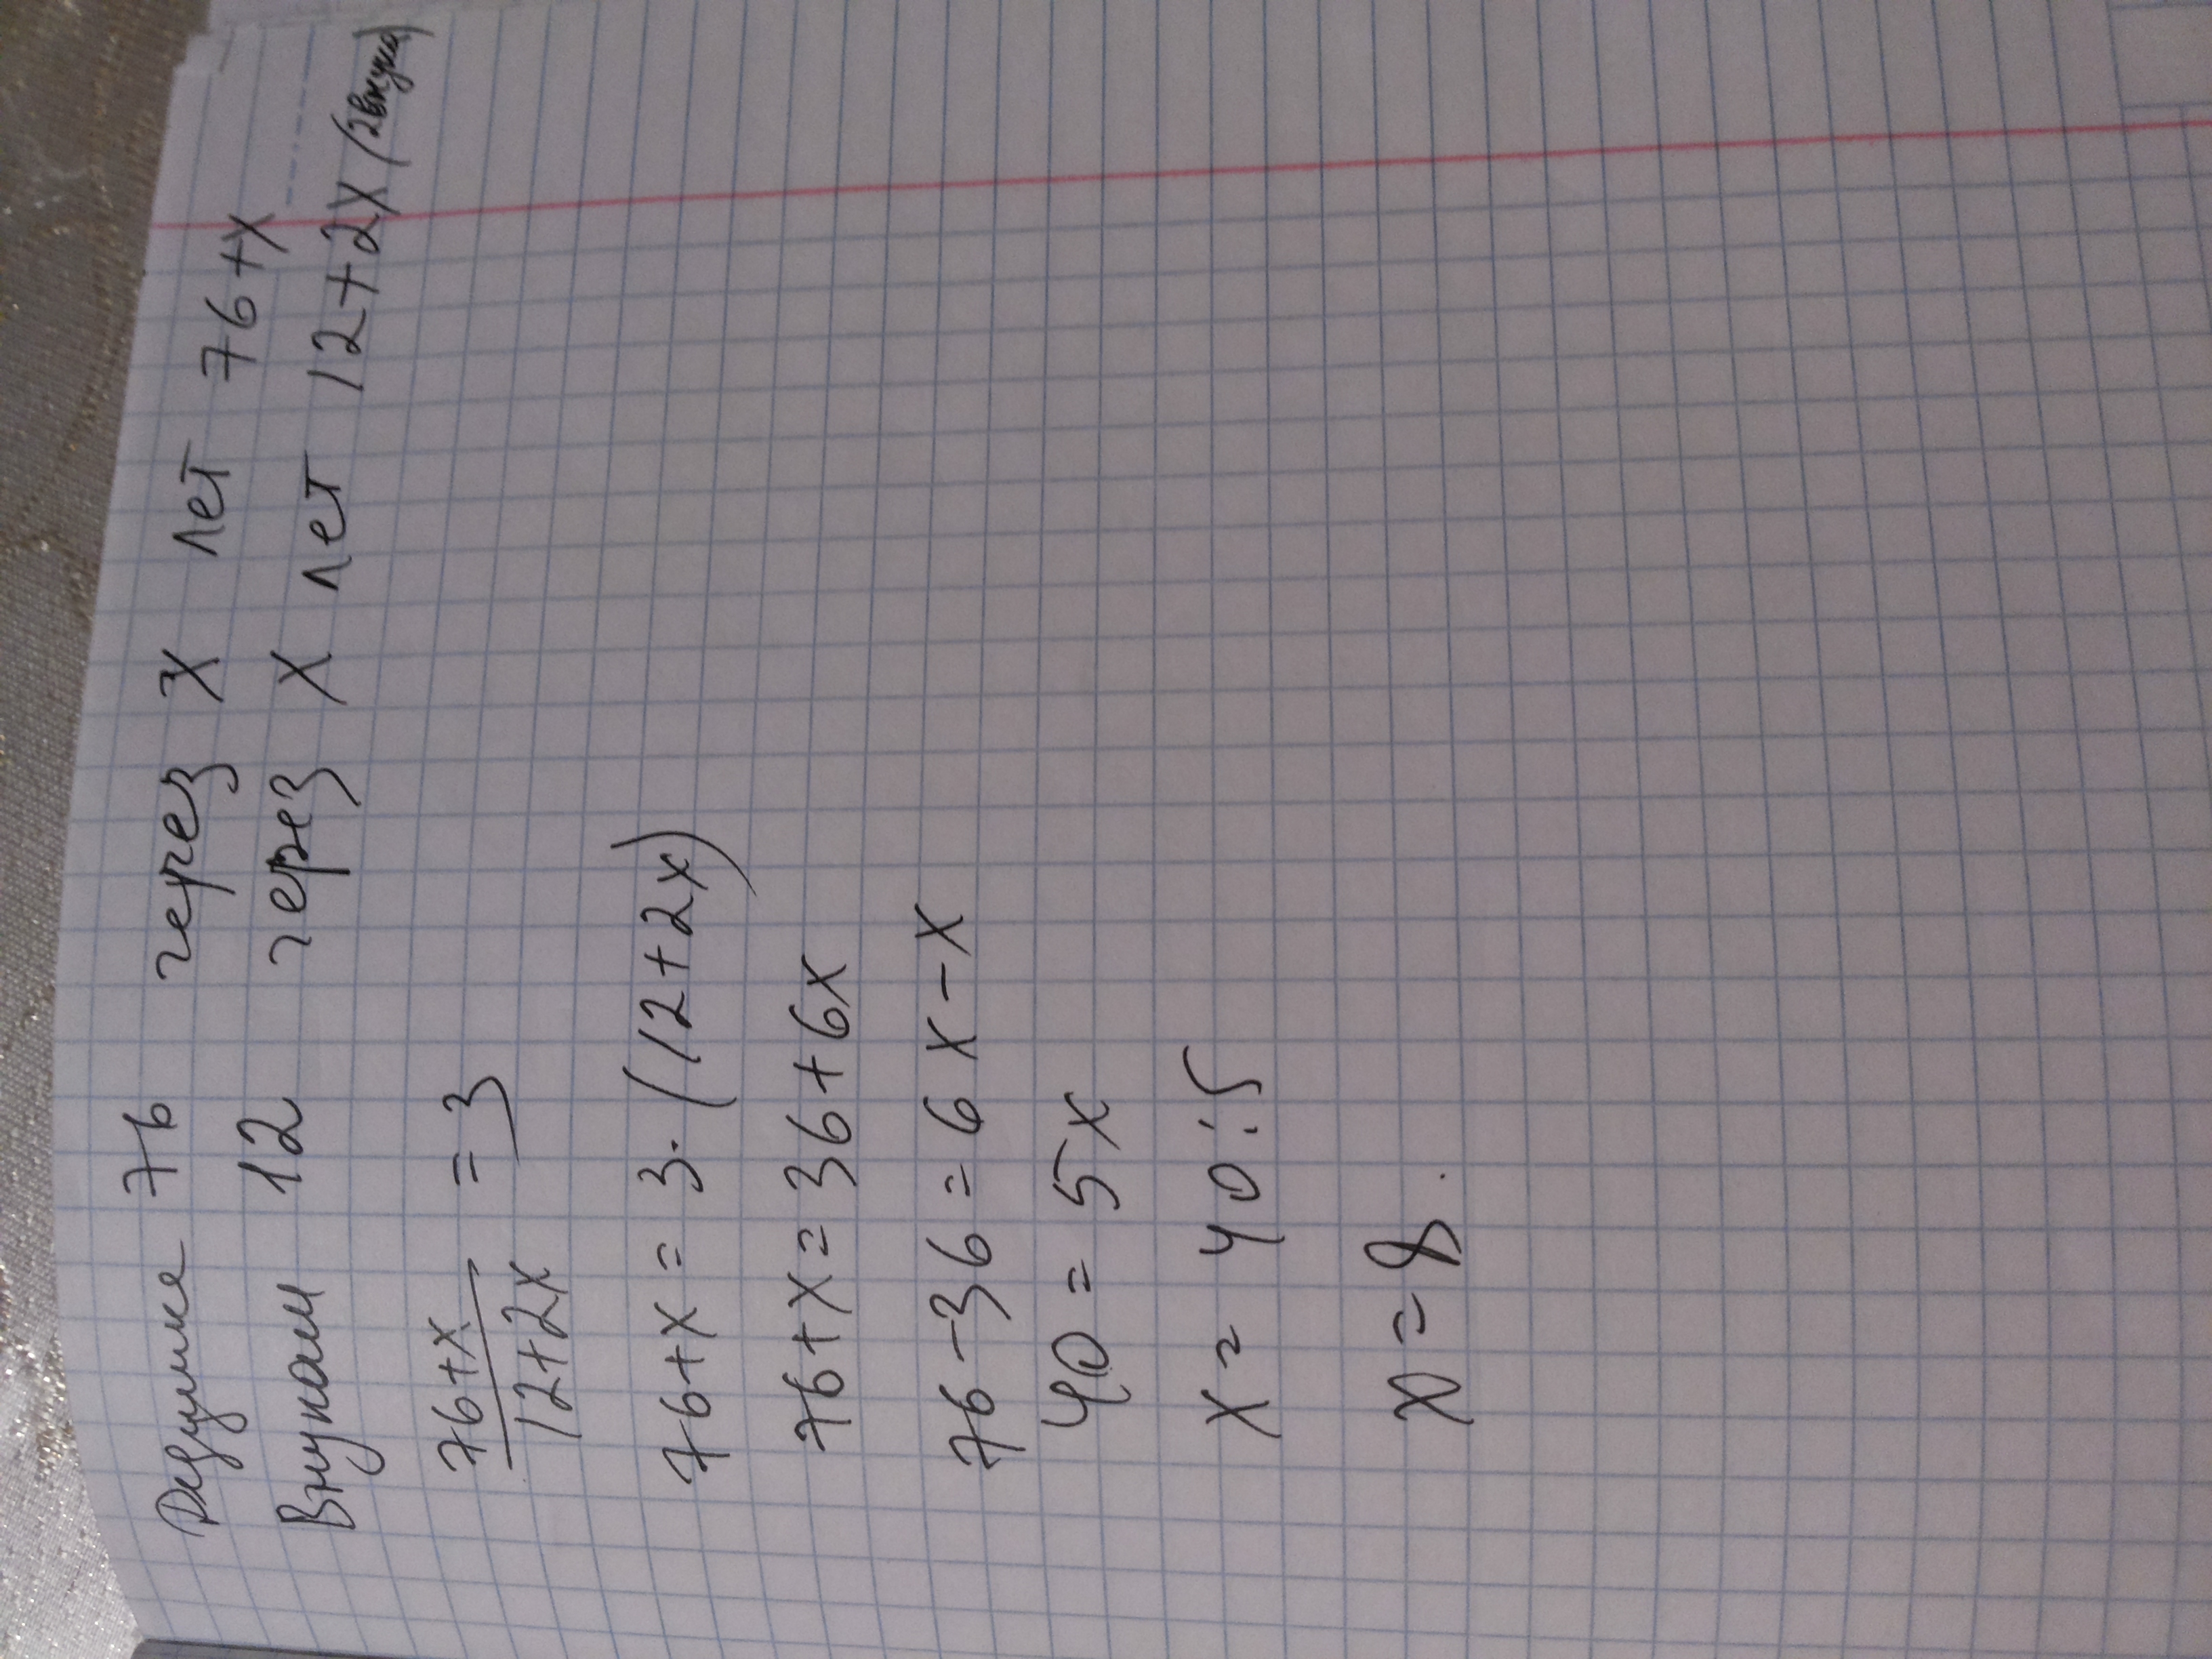 Дедушке 76 через х лет 76+х
Внукам 12 через х лет 12+2х (2внука)
76+х
12+2х
=3
76+х=3·(12+2х)
76+х=36+6х
76-36=6х-х
40=5х
х=40:5
х=8.